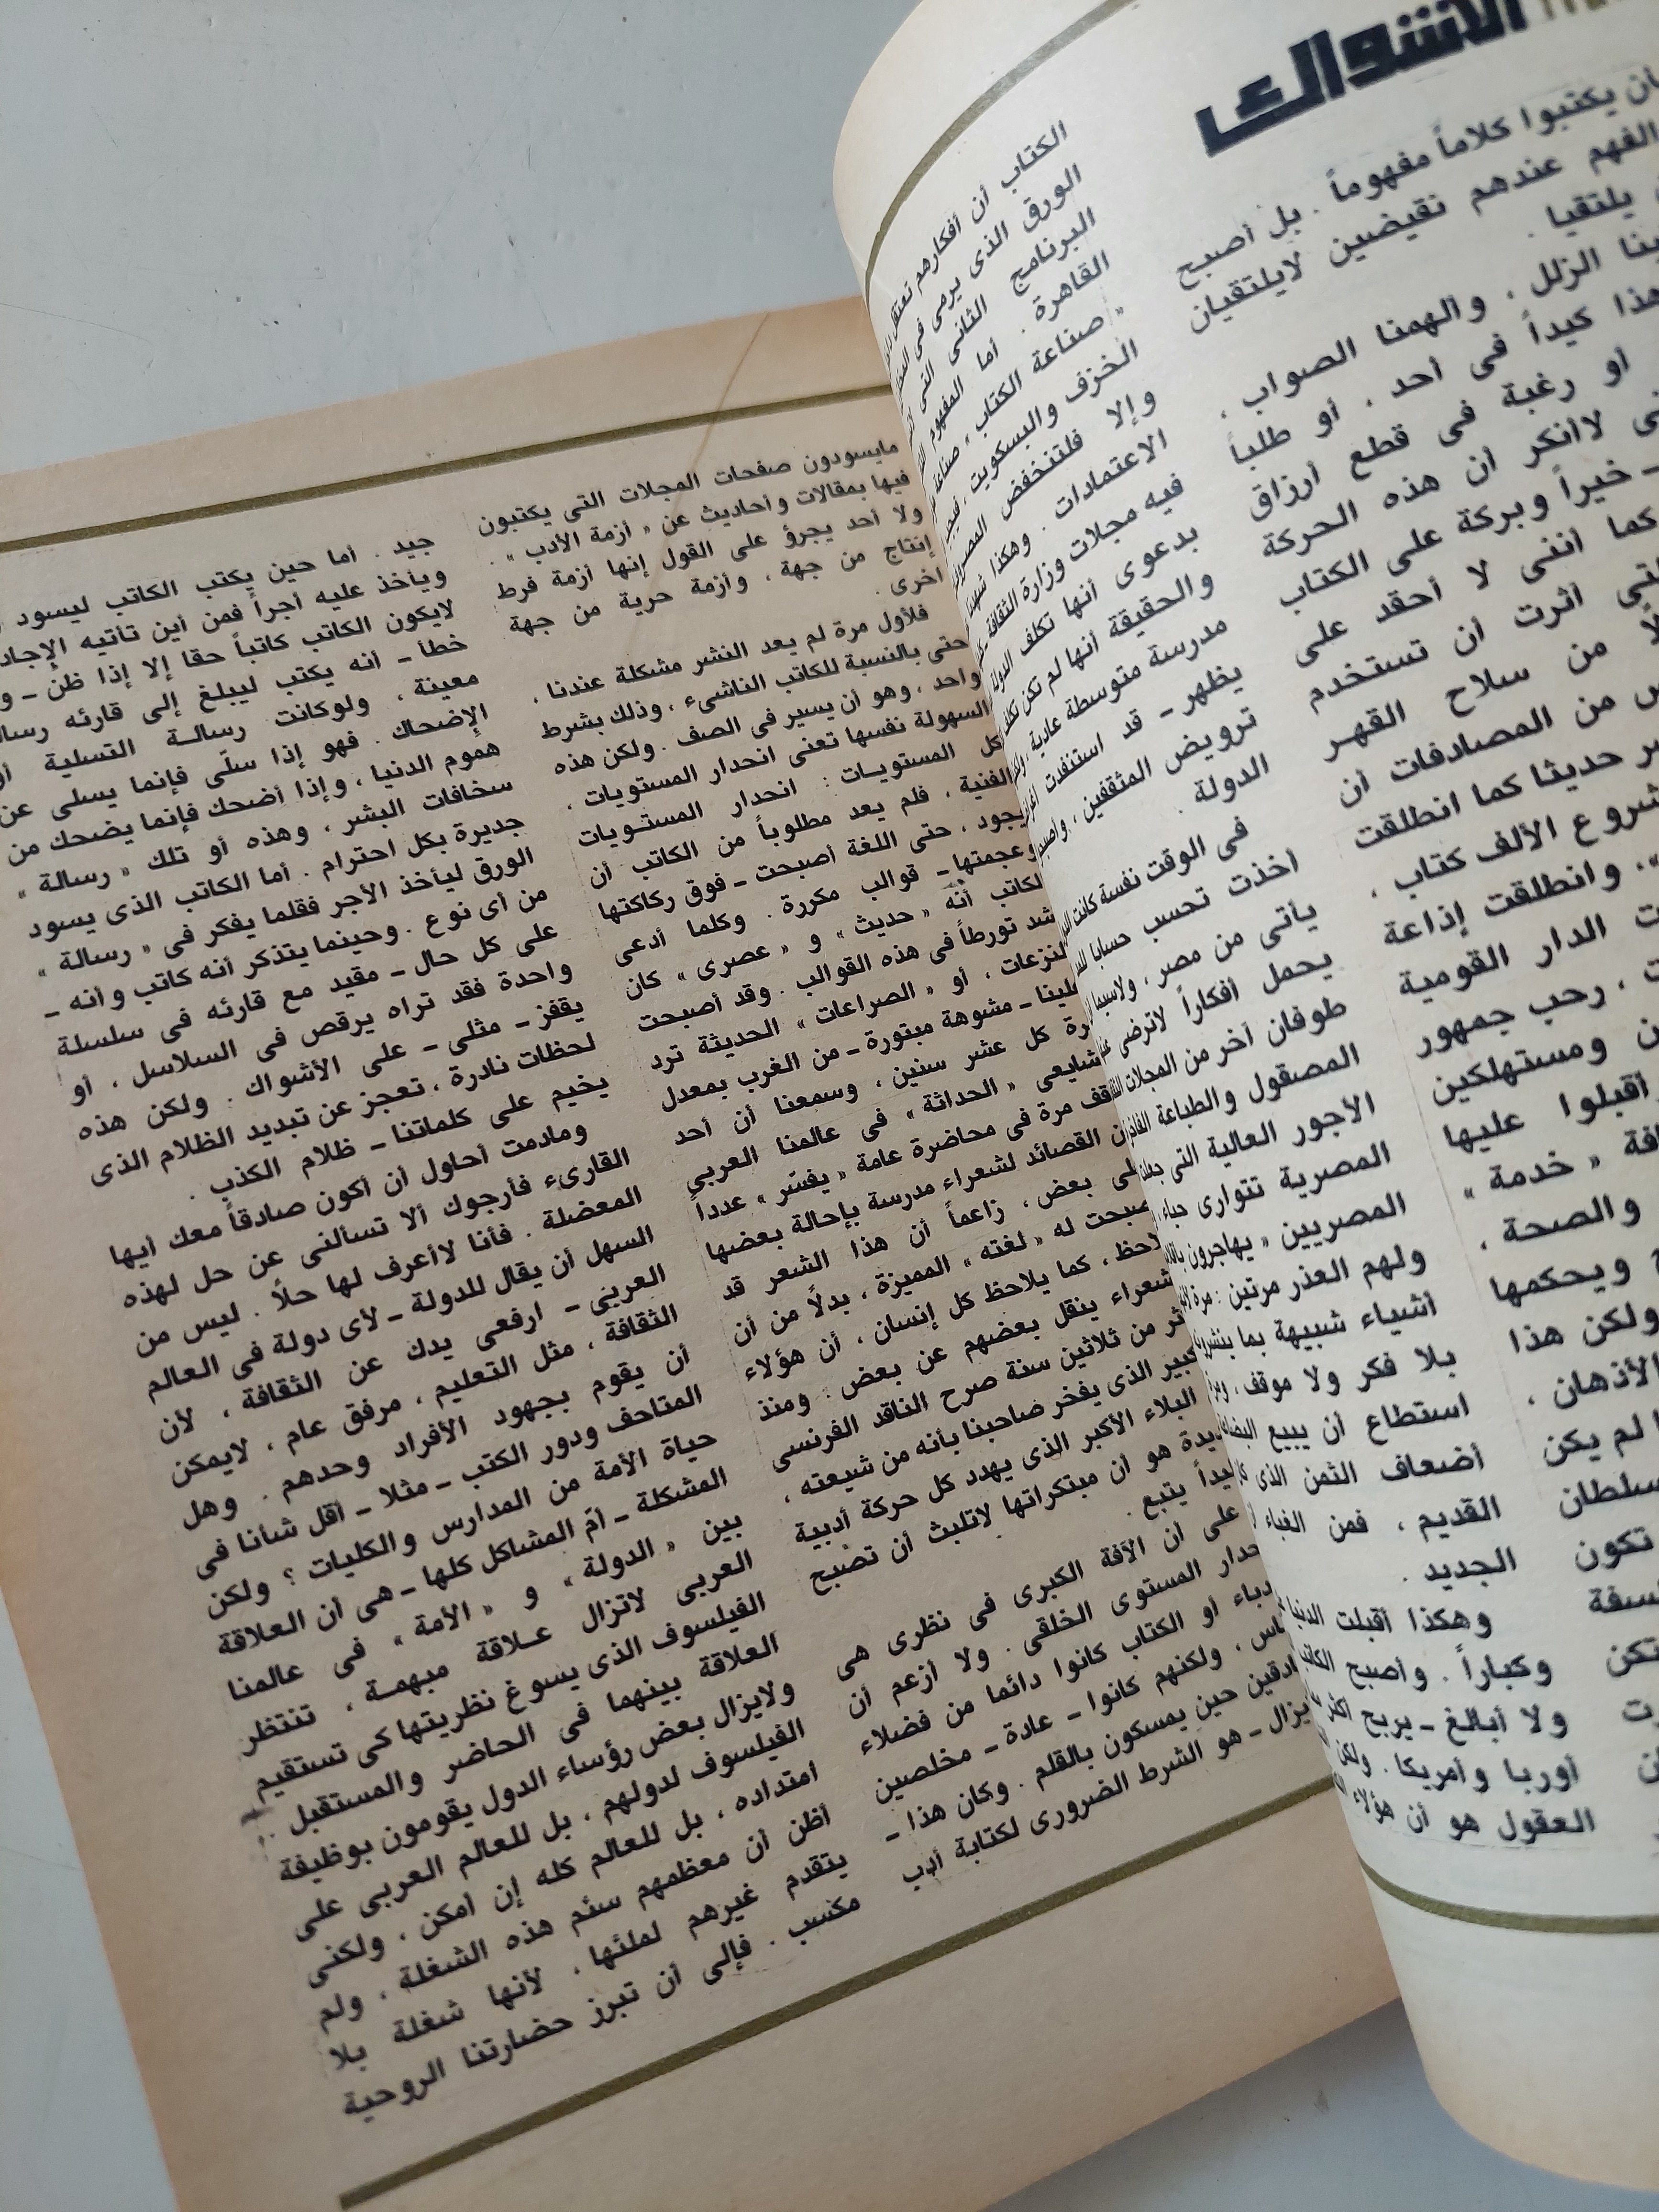 الأشواك
أن يكتبوا كلاماً مفهوماً . بل أصبح
الفهم عندهم نقيضين لايلتقيان
يلتقيا .
الزلل ، وألهمنا الصواب ،
هذا كيداً فى أحد ، أو طلباً
أو رغبة فى قطع أرزاق
لاأنكر أن هذه الحركة
ـ خيراً وبركة على الكتاب
كما أننى لا أحقد على
أثرت أن تستخدم
من سلاح القهر
من المصادفات أن
حديثا كما انطلقت
مشروع الألف كتاب ،
وانطلقت إذاعة
الدار القومية
، رحب جمهور
ومستهلكين
أقبلوا عليها
« خدمة »
والصحة ،
ويحكمها
ولكن هذا
الأذهان ،
لم يكن
تكون
الكتاب أن أفكارهم
الورق الذى يرمى فى
البرنامج الثانى التى
القاهرة . أما المفهوم
« صناعة الكتاب ، صناعة
الخزف والبسكويت ،
وإلا فلتنخفض
الاعتمادات . وهكذا شهدنا
فيه مجلات وزارة الثقافة
بدعوى أنها تكلف الدولة
والحقيقة أنها لم تكن تكلف
مدرسة متوسطة عادية ،
يظهر ـ قد استنفدت
ترويض المثقفين ،
الدولة .
فى الوقت نفسة كانت
أخذت تحسب حسابا
يأتى من مصر ، ولاسيما
يحمل أفكاراً لاترضى
طوفان آخر من المجلات
المصقول والطباعة
الأجور العالية التى
المصرية تتوارى
المصريين « يهاجرون
ولهم العذر مرتين : مرة
أشياء شبيهة بما
بلا فكر ولا موقف ،
استطاع أن يبيع
أضعاف الثمن الذى
القديم ، فمن الغباء
الجديد .
وهكذا أقبلت الدنيا
وكباراً . وأصبح الكاتب
ولا أبالغ ـ يربح أكثر
أوربا وأمريكا . ولكن
العقول هو أن هؤلاء
مايسودون صفحات المجلات التى يكتبون
فيها بمقالات وأحاديث عن « أزمة الأدب » .
ولا أحد يجرؤ على القول إنها أزمة فرط
إنتاج من جهة ، وأزمة حرية من جهة
أخرى .
فلأول مرة لم يعد النشر مشكلة عندنا ،
حتى بالنسبة للكاتب الناشىء ، وذلك بشرط
واحد ، وهو أن يسير فى الصف . ولكن هذه
السهولة نفسها تعنى انحدار المستويات ،
كل المستويات : انحدار المستويات
الفنية ، فلم يعد مطلوباً من الكاتب أن
يجود ، حتى اللغة أصبحت ـ فوق ركاكتها
وعجمتها ـ قوالب مكررة . وكلما أدعى
الكاتب أنه « حديث » و « عصرى » كان
تورطاً فى هذه القوالب . وقد أصبحت
النزعات ، أو « الصراعات » الحديثة ترد
علينا ـ مشوهة مبتورة ـ من الغرب بمعدل
كل عشر سنين ، وسمعنا أن أحد
« الحداثة » فى عالمنا العربى
مرة فى محاضرة عامة « يفسر » عدداً
القصائد لشعراء مدرسة بإحالة بعضها
بعض ، زاعماً أن هذا الشعر قد
له « لغته » المميزة ، بدلاً من أن
، كما يلاحظ كل إنسان ، أن هؤلاء
ينقل بعضهم عن بعض : ومنذ
من ثلاثين سنة صرح الناقد الفرنسى
الذى يفخر صاحبنا بأنه من شيعته ،
البلاء الأكبر الذى يهدد كل حركة أدبية
هو أن مبتكراتها لاتلبث أن تصبح
يتبع .
على أن الآفة الكبرى فى نظرى هى
المستوى الخلقى . ولا أزعم أن
أو الكتاب كانوا دائما من فضلاء
، ولكنهم كانوا ـ عادة ـ مخلصين
حين يمسكون بالقلم . وكان هذا ـ
ـ هو الشرط الضرورى لكتابة أدب
جيد . أما حين يكتب الكاتب ليسود
ويأخذ عليه أجراً فمن أين تأتيه
لايكون الكاتب كاتباً حقا إلا إذا ظن ـ
خطأ ـ أنه يكتب ليبلغ إلى قارئه
معينة ، ولوكانت رسالة التسلية
الإضحاك . فهو إذا سلّى فإنما يسلى عن
هموم الدنيا ، وإذا أضحك فإنما يضحك من
سخافات البشر ، وهذه أو تلك « رسالة »
جديرة بكل احترام . أما الكاتب الذى يسود
الورق ليأخذ الأجر فقلما يفكر فى « رسالة »
من أى نوع . وحينما يتذكر أنه كاتب وأنه ـ
على كل حال ـ مقيد مع قارئه فى سلسلة
واحدة فقد تراه يرقص فى السلاسل ، أو
يقفز ـ مثلى ـ على الأشواك . ولكن هذه
لحظات نادرة ، تعجز عن تبديد الظلام الذى
يخيم على كلماتنا ـ ظلام الكذب .
ومادمت أحاول أن أكون صادقاً معك أيها
القارىء فأرجوك ألا تسألنى عن حل لهذه
المعضلة . فأنا لاأعرف لها حلاً . ليس من
السهل أن يقال للدولة ـ لأى دولة فى العالم
العربى ـ ارفعى يدك عن الثقافة ، لأن
الثقافة ، مثل التعليم ، مرفق عام ، لايمكن
أن يقوم بجهود الأفراد وحدهم . وهل
المتاحف ودور الكتب ـ مثلا ـ أقل شأنا فى
حياة الأمة من المدارس والكليات ؟ ولكن
المشكلة ـ أمّ المشاكل كلها ـ هى أن العلاقة
بين « الدولة » و « الأمة » فى عالمنا
العربى لاتزال علاقة مبهمة ، تنتظر
الفيلسوف الذى يسوغ نظريتها كى تستقيم
العلاقة بينهما فى الحاضر والمستقبل .
ولايزال بعض رؤساء الدول يقومون بوظيفة
الفيلسوف لدولهم ، بل للعالم العربى على
امتداده ، بل للعالم كله إن أمكن ، ولكنى
أظن أن معظمهم سئم هذه الشغلة ، ولم
يتقدم غيرهم لملئها ، لأنها شغلة بلا
مكسب . فإلى أن تبرز حضارتنا الروحية